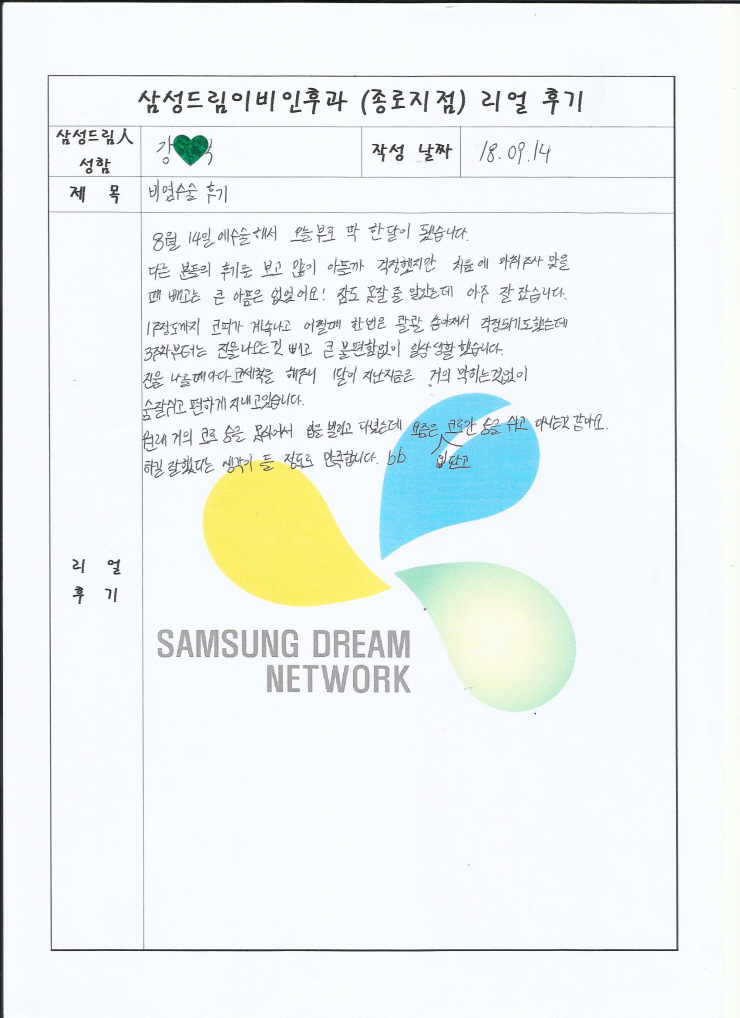 삼성드림이비인후과 (종로지점) 리얼 후기
삼성드림人
성함
강
작성 날짜
18.09.14
제 목
비염수술 후기
8월 14일에 수술해서 오늘부로 딱 한달이 됐습니다.
다른 분들의 후기를 보고 많이 아플까 걱정했지만 처음에 마취주사 맞을
때 빼고는 큰 아픔은 없었어요! 잠도 못잘 줄 알았는데 아주 잘 잤습니다.
1주정도까지 코피가 계속나고 어쩔때 한번은 콸콸 쏟아져서 걱정되기도했는데
3주차부터는 진물나오는것 빼고 큰 불편함없이 일상생활 했습니다.
진물 나올때마다 코세척을 해주니 1달이 지난지금은 거의 막히는것없이
숨 잘쉬고 편하게 지내고있습니다.
원래 거의 코로 숨을 못쉬어서 입을 벌리고 다녔는데 요즘은 코로만 숨을 쉬고 다니는것 같아요.
입닫고
하길 잘했다는 생각이 들 정도로 만족합니다. bb
리 얼
후 기
SAMSUNG DREAM
NETWORK